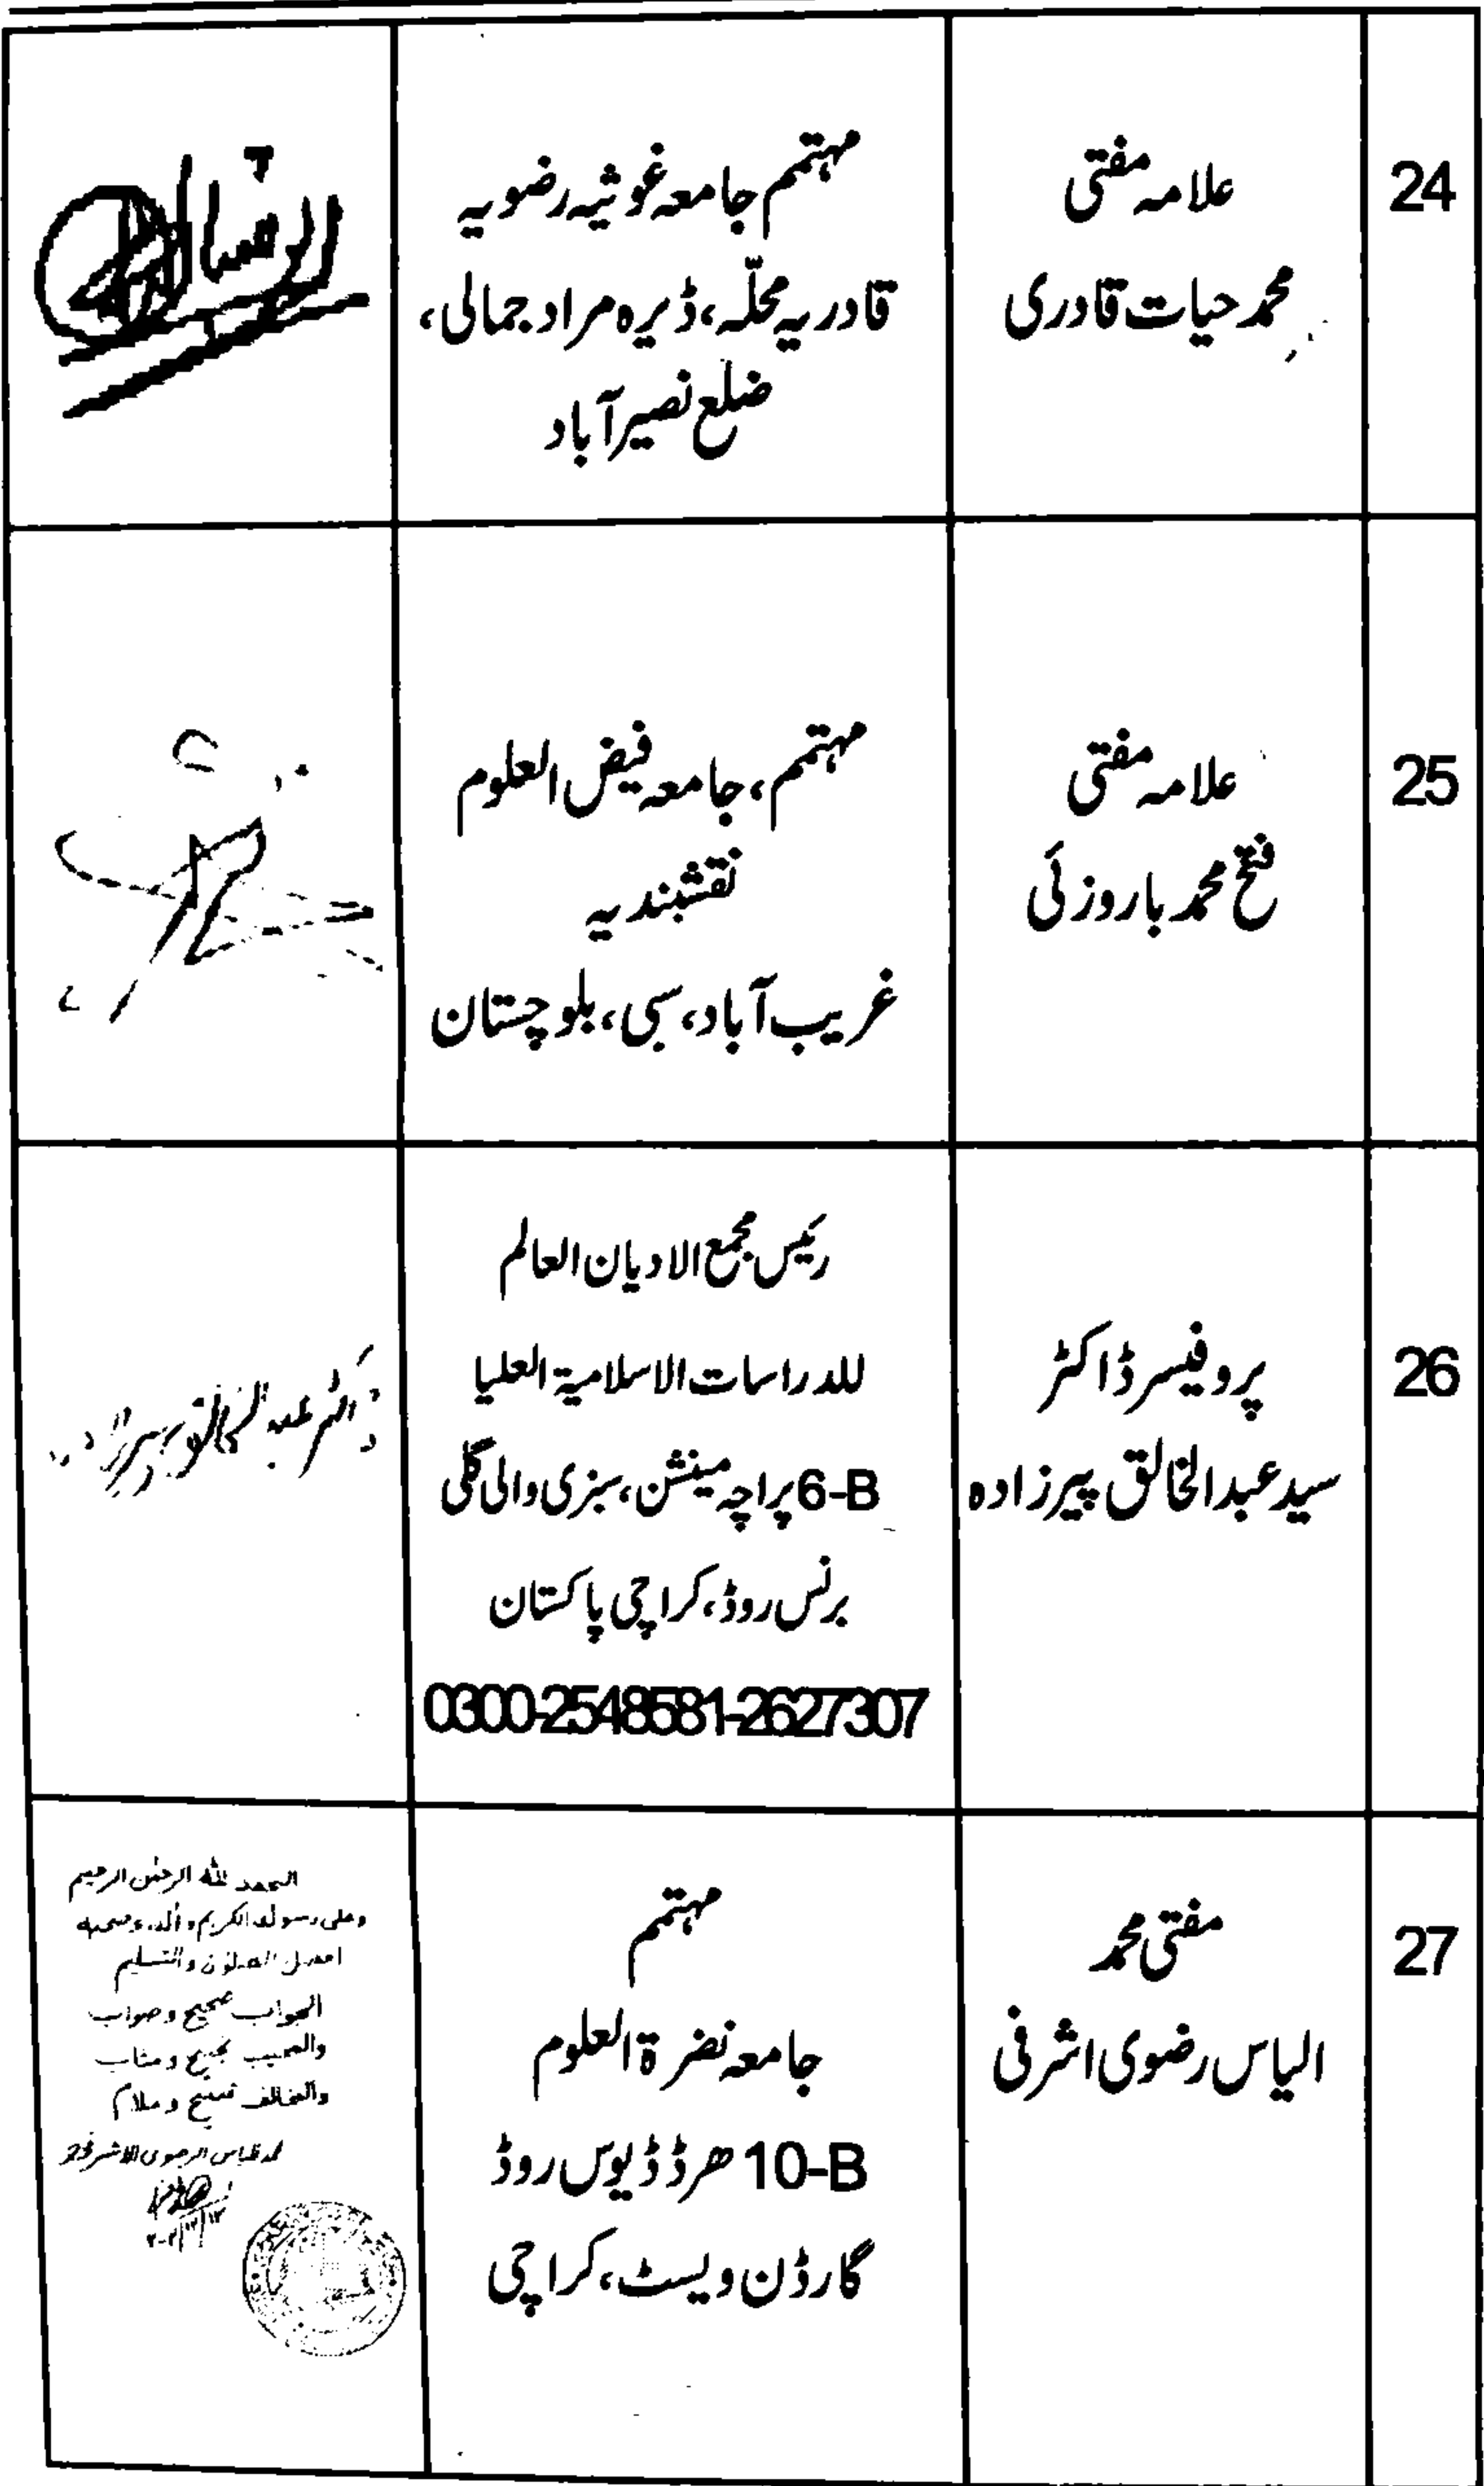 24
علامہ مفتی
محمد حیات قادری
مہتمم جامعہ غوثیہ رضویہ
قادریہ محلّہ، ڈیرہ مراد جمالی،
ضلع نصیر آباد
25
علامہ مفتی
فتح محمد باروزئی
مہتمم، جامعہ فیض العلوم
نقشبندیہ
غریب آباد، سبی، بلوچستان
26
پروفیسر ڈاکٹر
سید عبدالخالق پیرزادہ
رئیس مجمع الادیان العالم
للدراسات الاسلامیۃ العلیا
6-B پراچہ مینشن، سبزی والی گلی
برنس روڈ، کراچی پاکستان
0300-2548581-2627307
27
مفتی محمد
الیاس رضوی اشرفی
مہتمم
جامعہ نضرۃ العلوم
10-B ھرڈ ڈیوس روڈ
گارڈن ویسٹ، کراچی
الحمد للہ الرحمٰن الرحیم
وعلی رسولہ الکریم وآلہ وصحبہ
افضل الصلوٰۃ والتسلیم
الجواب صحیح وصواب